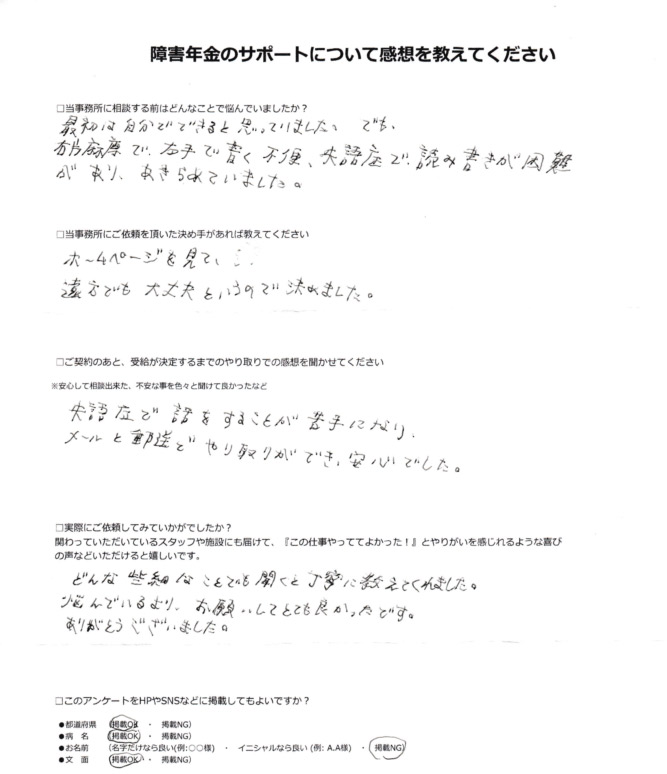 障害年金のサポートについて感想を教えてください
□当事務所に相談する前はどんなことで悩んでいましたか？
最初は自分でできると思っていました。 でも、
右片麻痺で、右手で書く不便、失語症で、読み書きが困難
があり、あきらめていました。
□当事務所にご依頼を頂いた決め手があれば教えてください
ホームページを見て、
遠方でも大丈夫というので決めました。
□ご契約のあと、受給が決定するまでのやり取りでの感想を聞かせてください
※安心して相談出来た、不安な事を色々と聞けて良かったなど
失語症で話をすることが苦手になり、
メールと郵送でやり取りができ、安心でした。
□実際にご依頼してみていかがでしたか？
関わっていただいているスタッフや施設にも届けて、『この仕事やっててよかった！』とやりがいを感じれるような喜び
の声などいただけると嬉しいです。
どんな些細なことでも聞くと丁寧に教えてくれました。
悩んでいるより、お願いしてとても良かったです。
ありがとうございました。
□このアンケートをHPやSNSなどに掲載してもよいですか？
●都道府県 （掲載OK ・ 掲載NG）
●病 名 （掲載OK ・ 掲載NG）
●お名前 （名字だけなら良い(例:○○様) ・ イニシャルなら良い (例: A.A様) ・ 掲載NG）
●文 面 （掲載OK ・ 掲載NG）